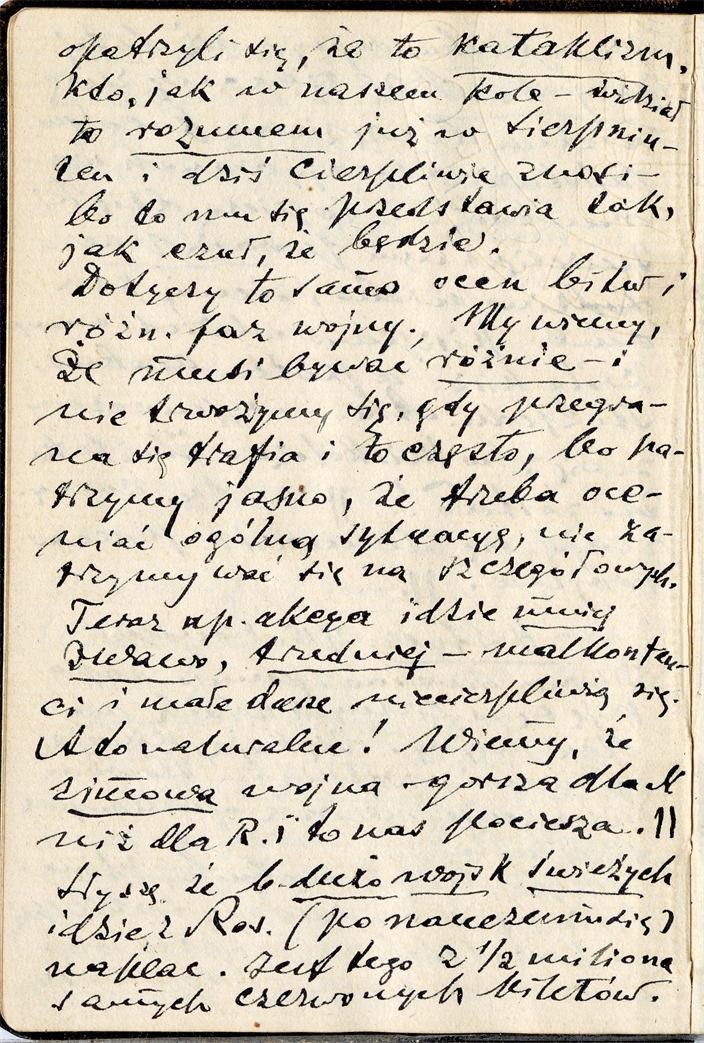 opatrzyli się, że to kataklizm.
Kto, jak w naszem kole – widział
to rozumem już w sierpniu –
ten i dziś cierpliwie znosi –
bo to mu się przedstawia tak,
jak czuł, że będzie.
Dotyczy to samo ocen bitw i
różn. faz wojny. My wiemy,
Że musi bywać różnie – i
nie trwożymy się, gdy przegra-
na się trafia i to często, bo pa-
trzymy jasno, że trzeba oce-
niać ogólną sytuacyę, nie za-
trzymywać się na szczegółowych.
Teraz np. akcya idzie mniej
żwawo, trudniej – malkonten-
ci i małe dusze niecierpliwią się.
A to naturalne! Wiemy, że
zimowa wojna – gorsza dla N
niż dla R. i to nas pociesza. ||
Słyszę że b. dużo wojsk świeżych
idzie z Ros. (po nauczeniu się)
na plac. Jest tego 2 1/2 miliona
samych czerwonych biletów.